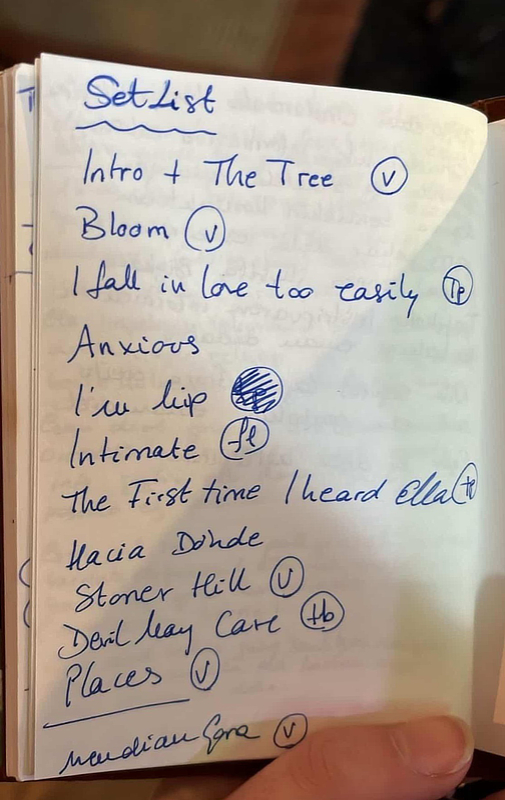 Set List
Intro + The Tree (v)
Bloom (v)
I fall in love too easily (Tp)
Anxious
I'm hip
Intimate (fl)
The First time I heard Ella (tp)
Hacia Dónde
Stoner Hill (v)
Devil May Care (tb)
Places (v)
(v)